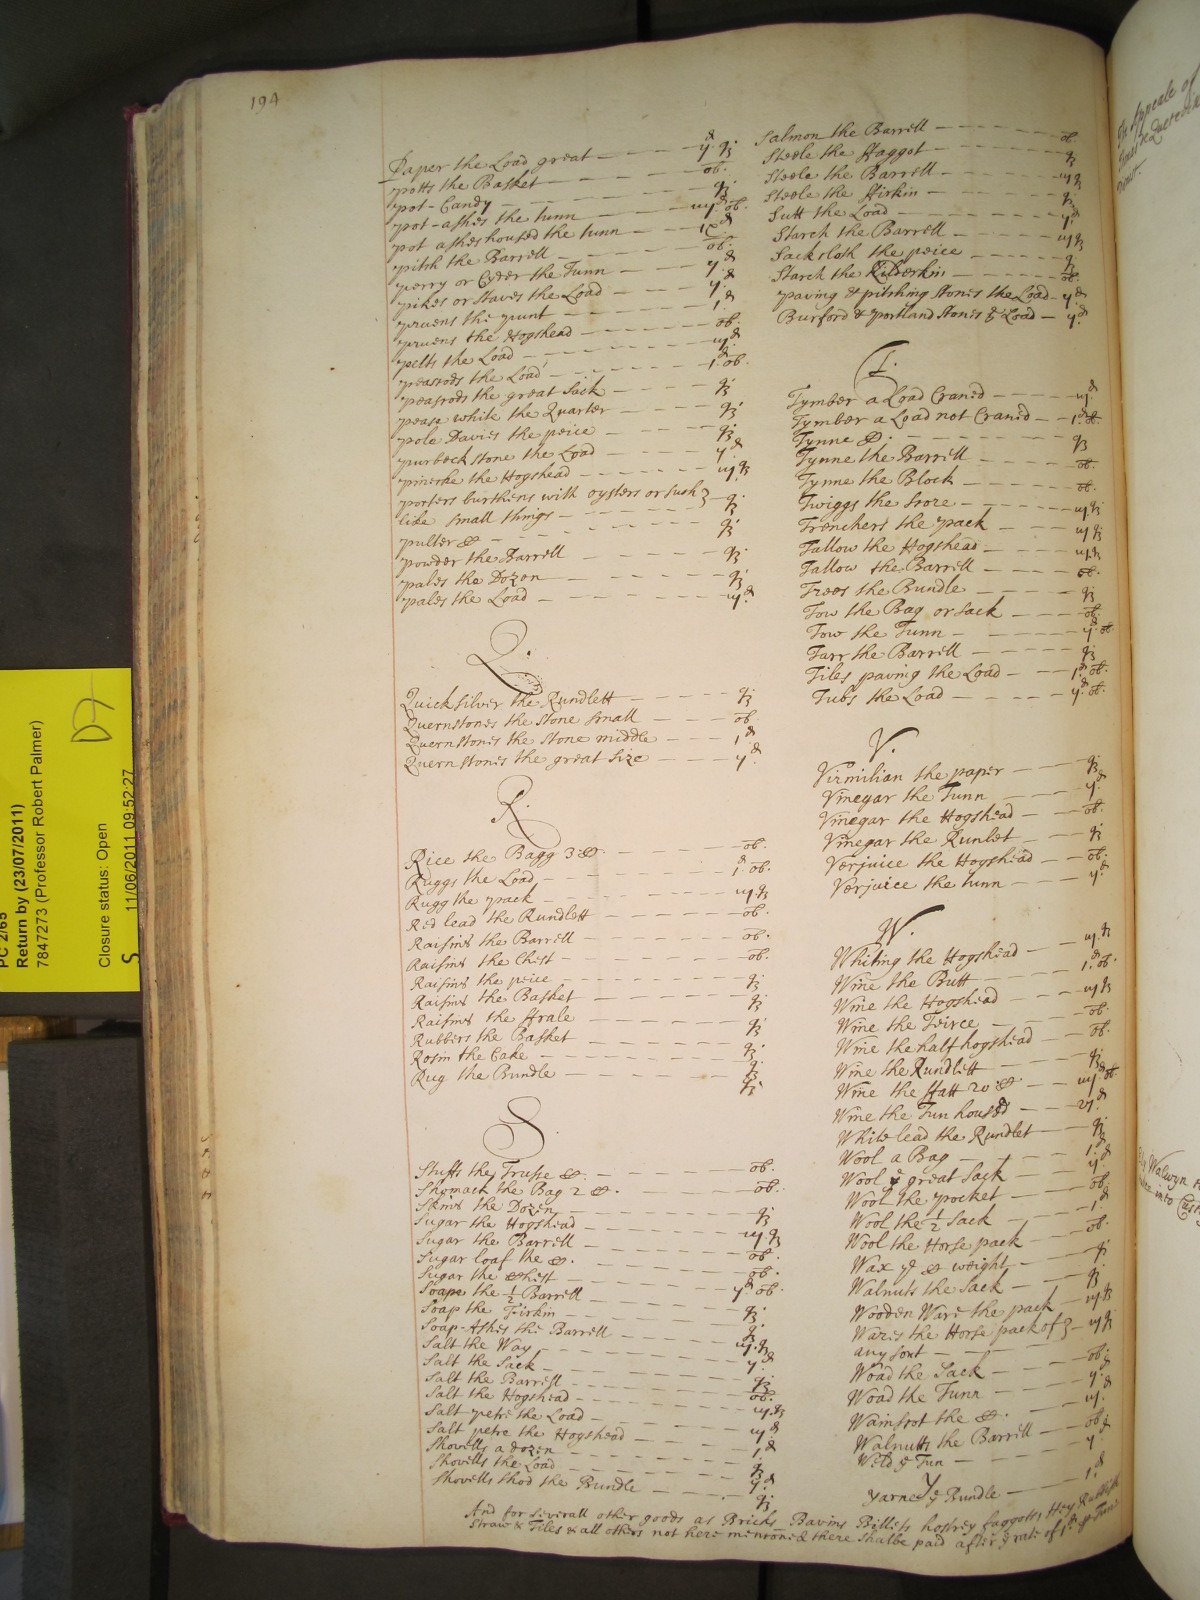 194
Paper the Load great — ij qz
potts the Basket — ob.
pot-Candy — qz
pot-ashes the tunn — iiijd ob.
pot ashes housed the tunn — ixd
pitch the Barrell — ob.
perry or Cyder the Tunn — ijd
pikes or staves the Load — ijd
pruens the punt — 1d
pruens the Hogshead — ob.
pelts the Load — iijd
peasrods the Load — 1d ob.
peasrods the great Sack — qz
pease white the Quarter — qz
pole Davies the peice — qz
purbeck stone the Load — ijd
the Hogshead — iij qz
porters burthens with oysters or such } — qz
like small things —
pulter — qz
powder the Barrell — qz
pales the Dozen — qz
pales the Load — iijd
Q.
Quicksilver the Rundlett — qz
Quernstones the stone small — ob.
Quernstones the stone middle — 1d
Quernstones the great size — ijd
R
Rice the Bagg 3 C — ob.
Ruggs the Load — 1d ob.
Rugg the pack — iij qz
Red lead the Rundlett — ob.
Raisins the Barrell — ob.
Raisins the Chest — ob.
Raisins the peice — qz
Raisins the Basket — qz
Raisins the Frale — qz
Rubbers the Basket — qz
Rosin the Cake — qz
Rug the Bundle — qz
S
Stuffs the Trusse C. — ob.
Shomack the Bag 2 C. — ob.
Skins the Dozen — qz
Sugar the Hogshead — iij qz
Sugar the Barrell — ob.
Sugar loaf the C. — ob.
Sugar the Chest — ijd ob.
Soape the ½ Barrell — qz
Soap the Firkin — qz
Soap-Ashes the Barrell — iij qz
Salt the Way — ijd
Salt the Sack — qz
Salt the Barrell — ob.
Salt the Hogshead — iij qz
Salt petre the Load — iijd
Salt petre the Hogshead — 1d
Shovells a dozen — qz
Shovells the Load — ijd
Shovells shod the Bundle — qz
Salmon the Barrell — ob
Steele the Faggot — qz
Steele the Barrell — iij qz
Steele the Firkin — qz
Sutt the Load — ijd
Starch the Barrell — iij qz
Sackcloth the peice — qz
Starch the Kilderkin — ob.
paving & pitching Stones the Load — ijd
Burford & portland Stones ye Load — ijd
T.
Tymber a Load Craned — iijd
Tymber a Load not Craned — 1d ob.
Tynne C. — qz
Tynne the Barrell — ob.
Tynne the Block — ob.
Twiggs the score — iij qz
Trenchers the pack — iij qz
Tallow the Hogshead — iij qz
Tallow the Barrell — ob.
Trees the Bundle — qz
Tow the Bag or Sack — ob.
Tow the Tunn — ijd ob
Tarr the Barrell — qz
Tiles paving the Load — 1d ob.
Tubs the Load — ijd ob.
V.
Virmilian the paper — qz
Vinegar the Tunn — ijd
Vinegar the Hogshead — ob.
Vinegar the Runlet — qz
Verjuice the Hogshead — ob.
Verjuice the tunn — ijd
W.
Whiting the Hogshead — iij qz
Wine the Butt — 1d ob.
Wine the Hogshead — iij qz
Wine the Teirce — ob.
Wine the half hogshead — ob.
Wine the Rundlett — qz
Wine the Fatt 20 C — iijd ob
Wine the Tun housed
White lead the Rundlet — qz
Wool a Bag — 1d
Wool ye great Sack — ijd
Wool the pocket — ob.
Wool the ½ Sack — 1d
Wool the Horse pack — ob.
Wax ye C weight — qz
Walnuts the Sack — qz
Wooden Ware the pack — iij qz
Wares the Horse pack of } — iij qz
any sort —
Woad the Sack — ob.
Woad the Tunn — ijd
Wainscot the C. — iijd
Walnutts the Barrell — ob.
Weld ye Tun — ijd
Y
Yarne ye Bundle — 1d
And for severall other goods as Bricks Bavins Billets faggots Hey Rubbish
Straw & Tiles & all others not here mencioned there shalbe paid after ye rate of 1d p Tunn
PC 2/65
Return by (23/07/2011)
7847273 (Professor Robert Palmer)
Closure status: Open
11/06/2011 09:52:27
S
D7
Appeale of
Walwyn
into